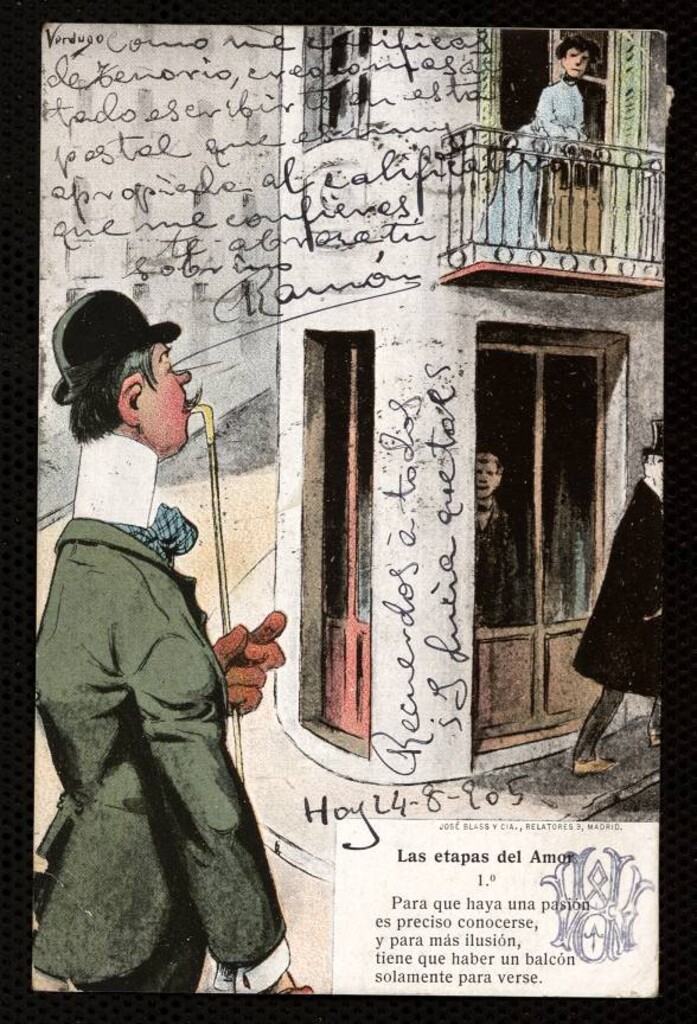 Verdugo
Como me calificas
de Tenorio, creeme
tado escribirte en esta
postal que es muy
apropiada al calificativo
que me confieres
te abraza tu
sobrino
Ramón
Recuerdos á todos
y que tales
Hoy 24-8-905
JOSÉ BLASS Y CIA., RELATORES 3, MADRID.
Las etapas del Amor
1.º
Para que haya una pasión
es preciso conocerse,
y para más ilusión,
tiene que haber un balcón
solamente para verse.